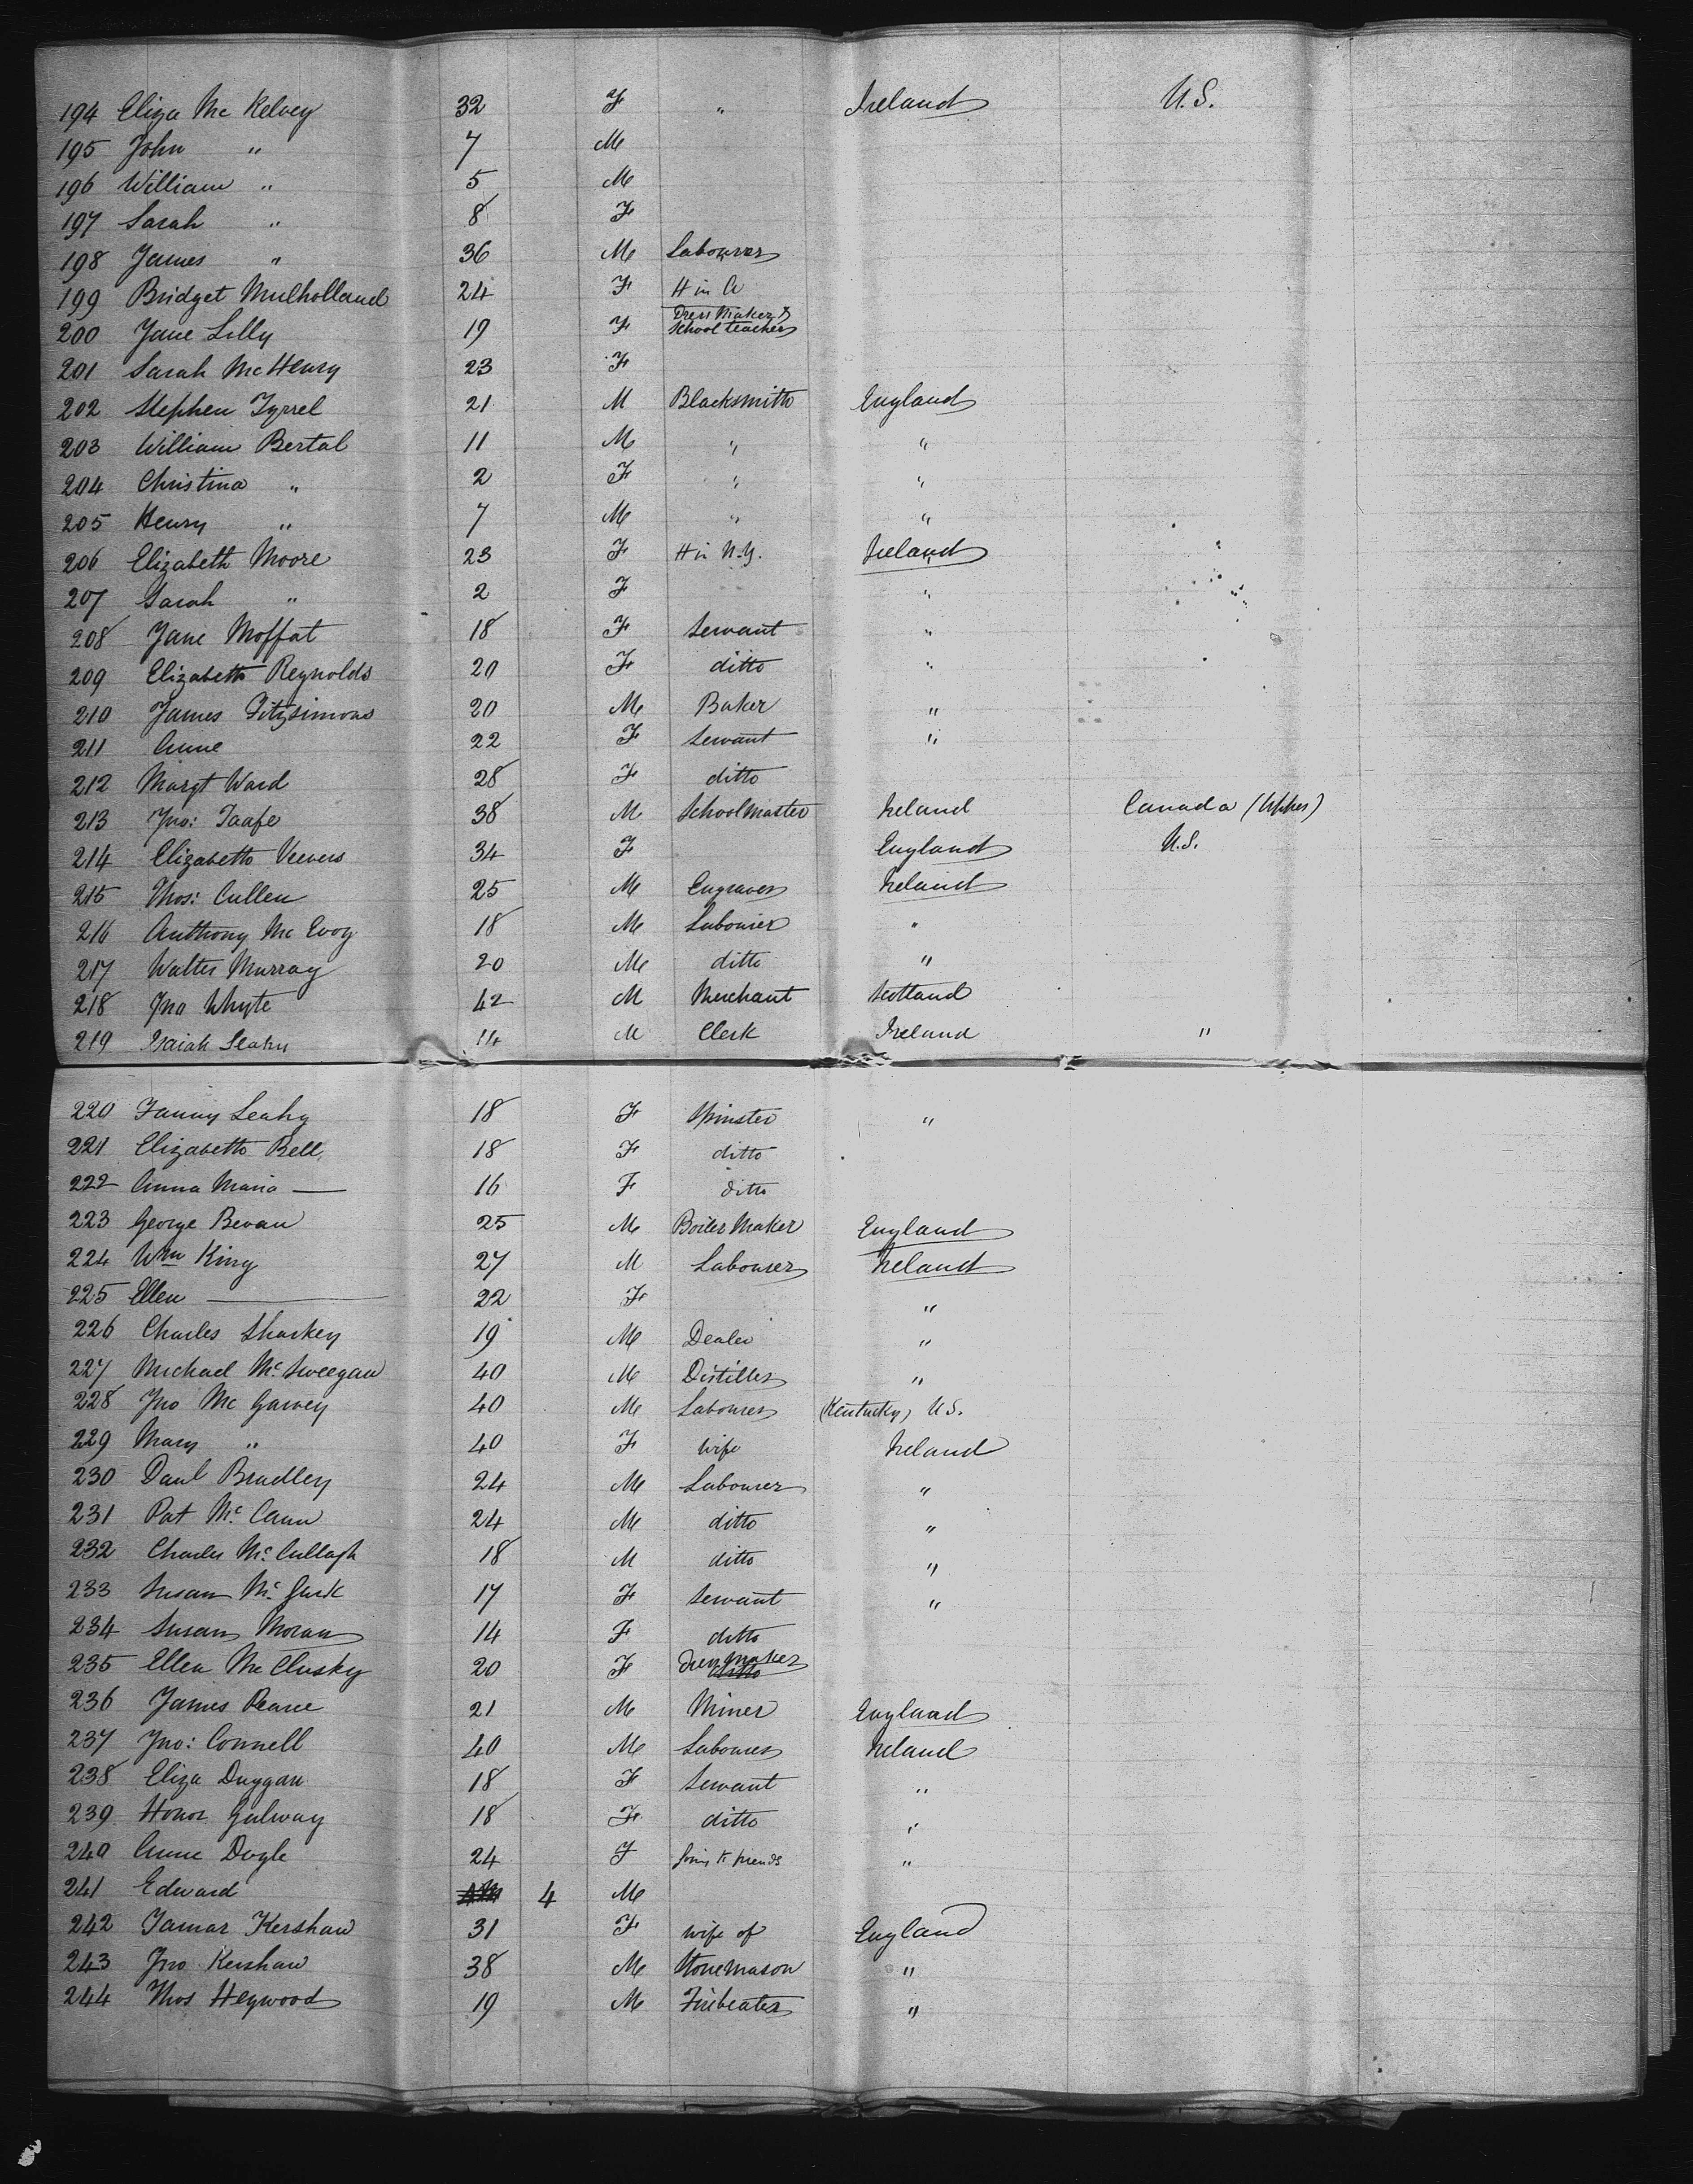 194 Eliza Mc Kelvey 32 F " Ireland U.S.
195 John " 7 M
196 William " 5 M
197 Sarah " 8 F
198 James " 36 M Labourer
199 Bridget Mulholland 24 F H in A
200 Jane Lilly 19 F Dress Maker & School teacher
201 Sarah McHenry 23 F
202 Stephen Tyrrel 21 M Blacksmith England
203 William Bertal 11 M " "
204 Christina " 2 F " "
205 Henry " 7 M " "
206 Elizabeth Moore 23 F H in N.Y. Ireland
207 Sarah " 2 F "
208 Jane Moffat 18 F Servant "
209 Elizabeth Reynolds 20 F ditto "
210 James Fitzsimons 20 M Baker "
211 Anne 22 F Servant "
212 Margt Ward 28 F ditto
213 Jno: Taafe 38 M Schoolmaster Ireland Canada (Upper)
214 Elizabeth Veevers 34 F England U.S.
215 Thos: Cullen 25 M Engraver Ireland
216 Anthony Mc Evoy 18 M Labourer "
217 Walter Murray 20 M ditto "
218 Jno Whyte 42 M Merchant Scotland
219 Isaiah Leahy 14 M Clerk Ireland "
220 Fanny Leahy 18 F Spinster "
221 Elizabeth Bell, 18 F ditto
222 Anna Maria — 16 F ditto
223 George Bevan 25 M Boiler Maker England
224 Wm King 27 M Labourer Ireland
225 Ellen — 22 F "
226 Charles Sharkey 19 M Dealer "
227 Michael Mc Sweegan 40 M Distiller "
228 Jno Mc Garvey 40 M Labourer (Kentucky) U.S.
229 Mary " 40 F Wife Ireland
230 Danl Bradley 24 M Labourer "
231 Pat Mc Cann 24 M ditto "
232 Charles Mc Cullagh 18 M ditto "
233 Susan Mc Gurk 17 F Servant "
234 Susan Moran 14 F ditto
235 Ellen McClusky 20 F Dressmaker ditto
236 James Pearce 21 M Miner England
237 Jno: Connell 40 M Labourer Ireland
238 Eliza Duggan 18 F Servant "
239 Honor Galway 18 F ditto "
240 Anne Doyle 24 F Going to friends "
241 Edward 4 M
242 Tamar Kershaw 31 F wife of England
243 Jno Kershaw 38 M Stonemason "
244 Thos Heywood 19 M Firebeater "